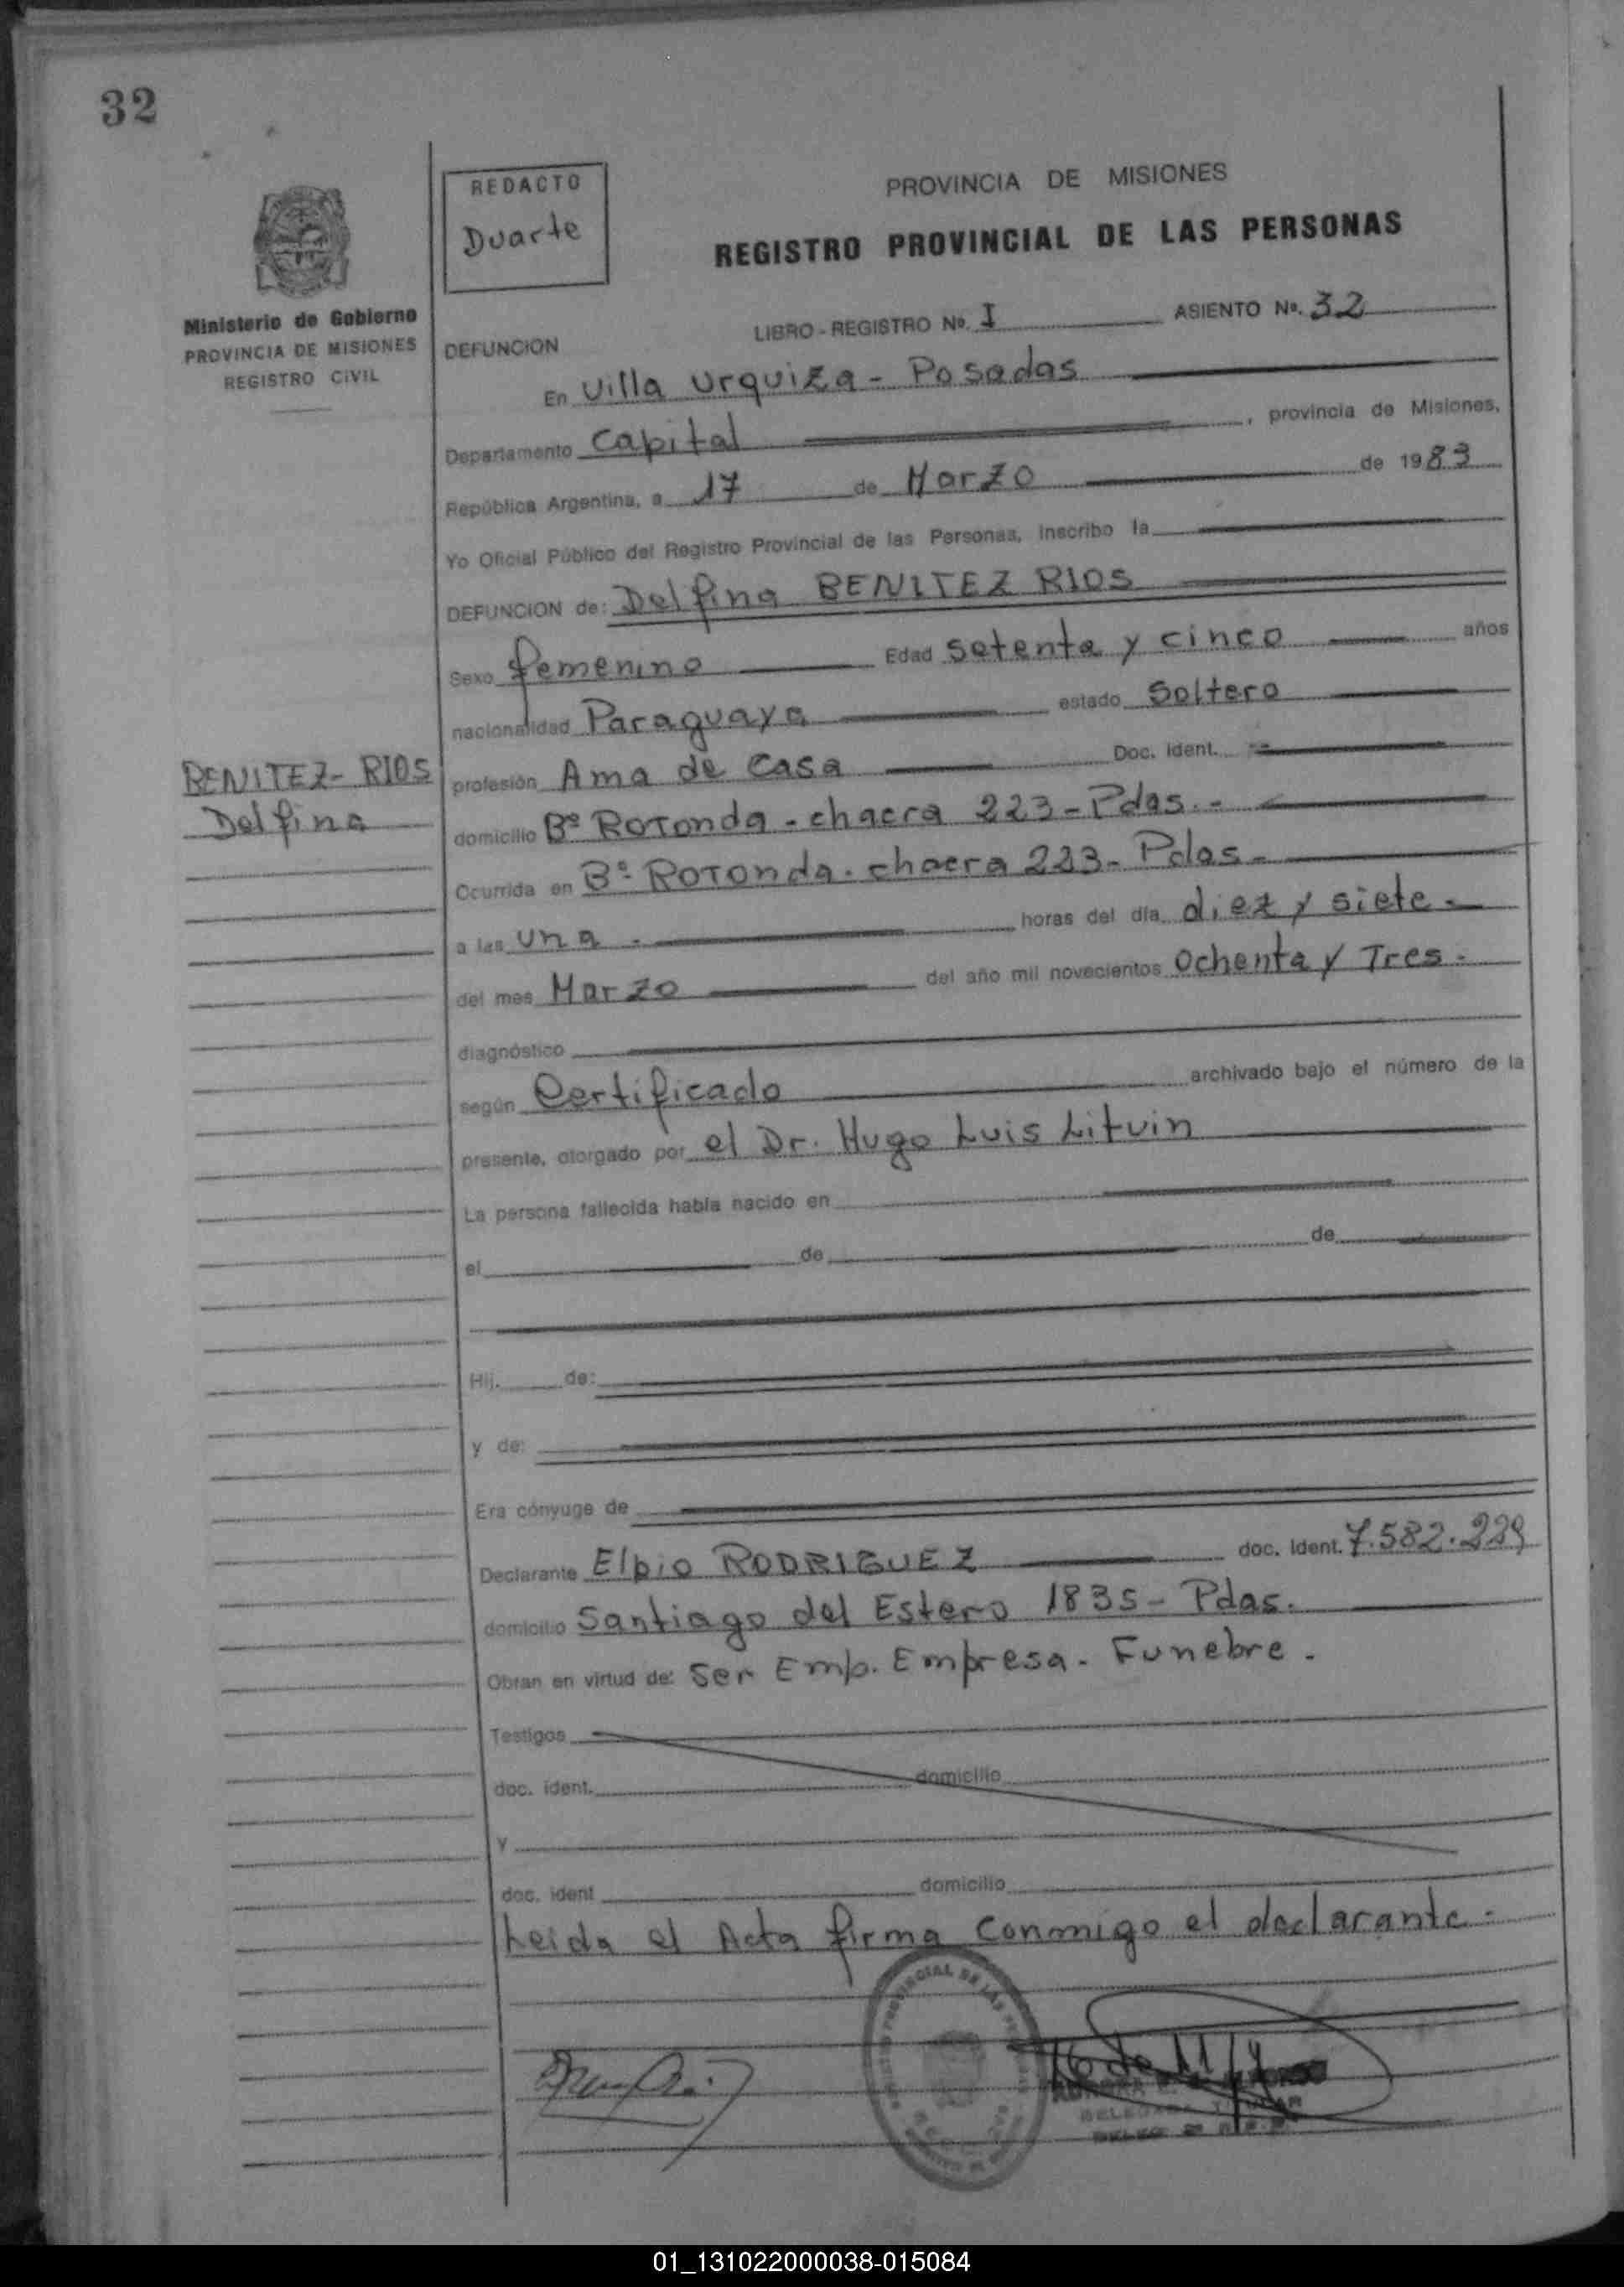 32
REDACTO
Duarte
PROVINCIA DE MISIONES
REGISTRO PROVINCIAL DE LAS PERSONAS
Ministerio de Gobierno
PROVINCIA DE MISIONES
REGISTRO CIVIL
LIBRO - REGISTRO No. I ASIENTO No. 32
DEFUNCION
En Villa Urquiza - Posadas
Departamento Capital, provincia de Misiones,
República Argentina, a 17 de Marzo de 1983
Yo Oficial Público del Registro Provincial de las Personas, inscribo la
DEFUNCION de: Delfina BENITEZ RIOS
Sexo femenino Edad setenta y cinco años
nacionalidad Paraguaya estado Soltero
BENITEZ - RIOS
Delfina
profesión Ama de Casa Doc. ident.
domicilio Bº Rotonda - chacra 223 - Pdas. -
Ocurrida en Bº Rotonda - chacra 223 - Pdas -
a las una - horas del día diez y siete -
del mes Marzo del año mil novecientos Ochenta y Tres -
diagnóstico
según Certificado archivado bajo el número de la
presente, otorgado por el Dr. Hugo Luis Litvin
La persona fallecida había nacido en
el de de
Hij. de:
y de:
Era cónyuge de
Declarante Elpio RODRIGUEZ doc. ident. 7.582.229
domicilio Santiago del Estero 1835 - Pdas.
Obran en virtud de: Ser Emp. Empresa - Funebre -
Testigos
doc. ident. domicilio
y
doc. ident domicilio
Leida el Acta firma conmigo el declarante -
01_131022000038-015084